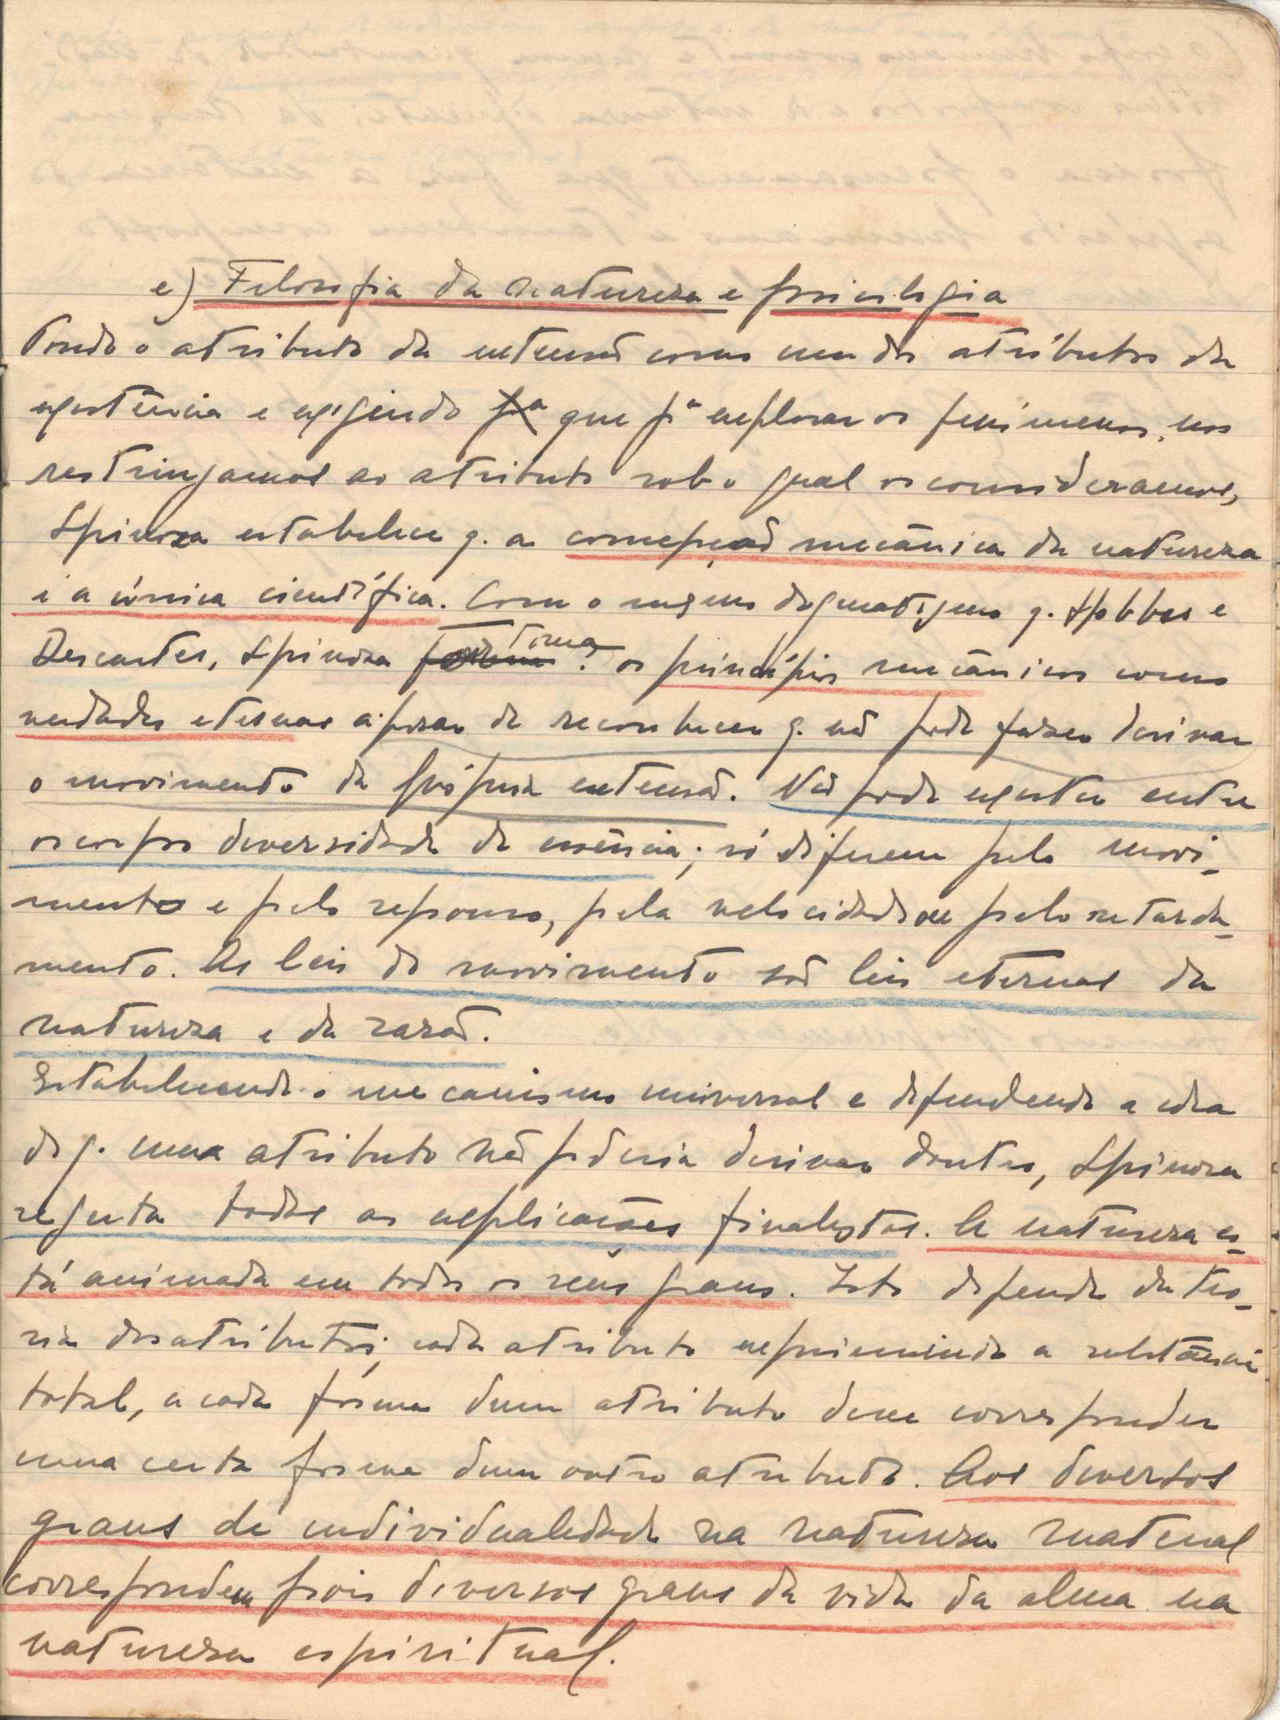 e) Filosofia da natureza e psicologia
Tendo o atributo da extensão como um dos atributos da
existência e exigindo que pª explicar os fenómenos, nos
restrinjamos ao atributo sob o qual os consideramos,
Spinoza estabelece q. a concepção mecânica da natureza
é a única científica. Com o mesmo dogmatismo q. Hobbes e
Descartes, Spinoza toma os princípios mecânicos como
verdades eternas apesar de reconhecer q. não pode fazer derivar
o movimento da própria extensão. Não pode existir entre
os corpos diversidade de essência; só diferem pelo movi-
mento e pelo repouso, pela velocidade ou pelo retarda-
mento. As leis do movimento são leis eternas da
natureza e da razão.
Estabelecendo o mecanismo universal e defendendo a ideia
de q. um atributo não poderia derivar doutro, Spinoza
rejeita todas as explicações finalistas. A natureza es-
tá animada em todos os seus graus. Isto depende da teo-
ria dos atributos; cada atributo exprimindo a substância
total, a cada forma dum atributo deve corresponder
uma certa forma dum outro atributo. Aos diversos
graus de individualidade na natureza material
correspondem pois diversos graus da vida da alma na
natureza espiritual.